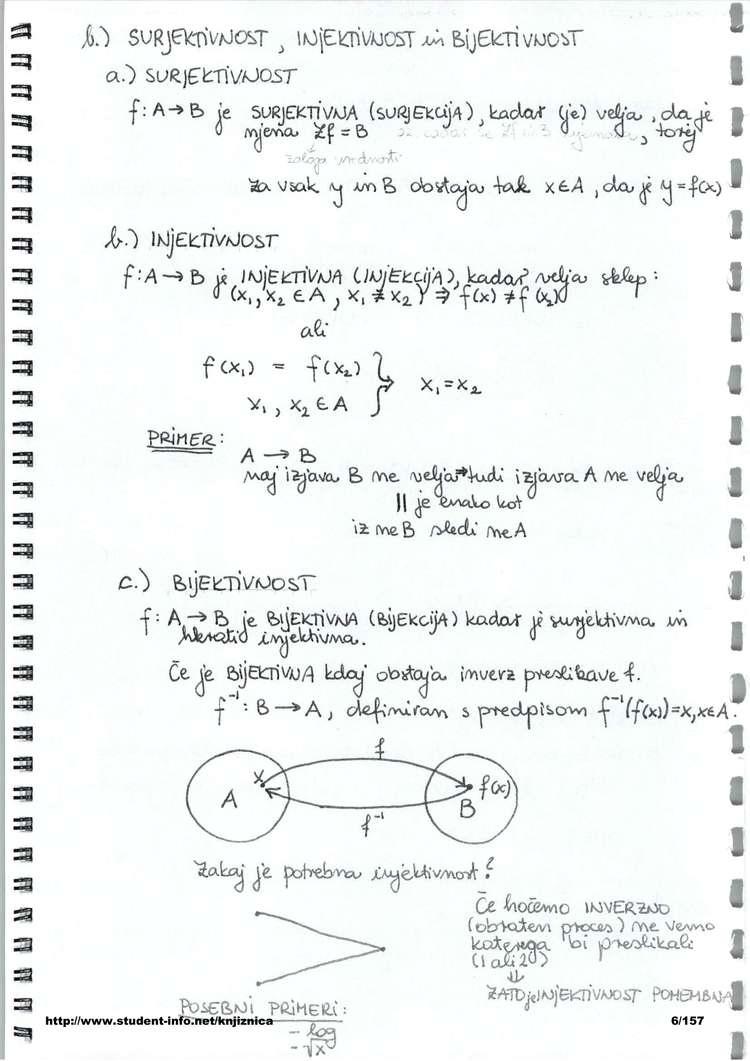 b.) SURJEKTIVNOST, INJEKTIVNOST in BIJEKTIVNOST
a.) SURJEKTIVNOST
f: A → B je SURJEKTIVNA (SURJEKCIJA), kadar (je) velja, da je
njena Zf = B , torej
zaloga vrednosti
za vsak y in B obstaja tak x ∈ A, da je y = f(x)
b.) INJEKTIVNOST
f: A → B je INJEKTIVNA (INJEKCIJA), kadar velja sklep:
(x₁, x₂ ∈ A, x₁ ≠ x₂) ⇒ f(x) ≠ f(x₂)
ali
f(x₁) = f(x₂)
x₁, x₂ ∈ A } ⇒ x₁ = x₂
PRIMER:
A → B
naj izjava B ne velja ⇒ tudi izjava A ne velja
|| je enako kot
iz ne B sledi ne A
c.) BIJEKTIVNOST
f: A → B je BIJEKTIVNA (BIJEKCIJA) kadar je surjektivna in
hkratio injektivna.
Če je BIJEKTIVNA kdaj obstaja inverz preslikave f.
f⁻¹: B → A, definiran s predpisom f⁻¹(f(x)) = x, x ∈ A.
f
x
f(x)
A
B
f⁻¹
Zakaj je potrebna injektivnost?
Če hočemo INVERZNO
(obraten proces) ne vemo
katerega bi preslikali
(1 ali 2?)
⇓
ZATO je INJEKTIVNOST POMEMBNA
POSEBNI PRIMERI:
http://www.student-info.net/knjiznica 6/157
- log
- √x